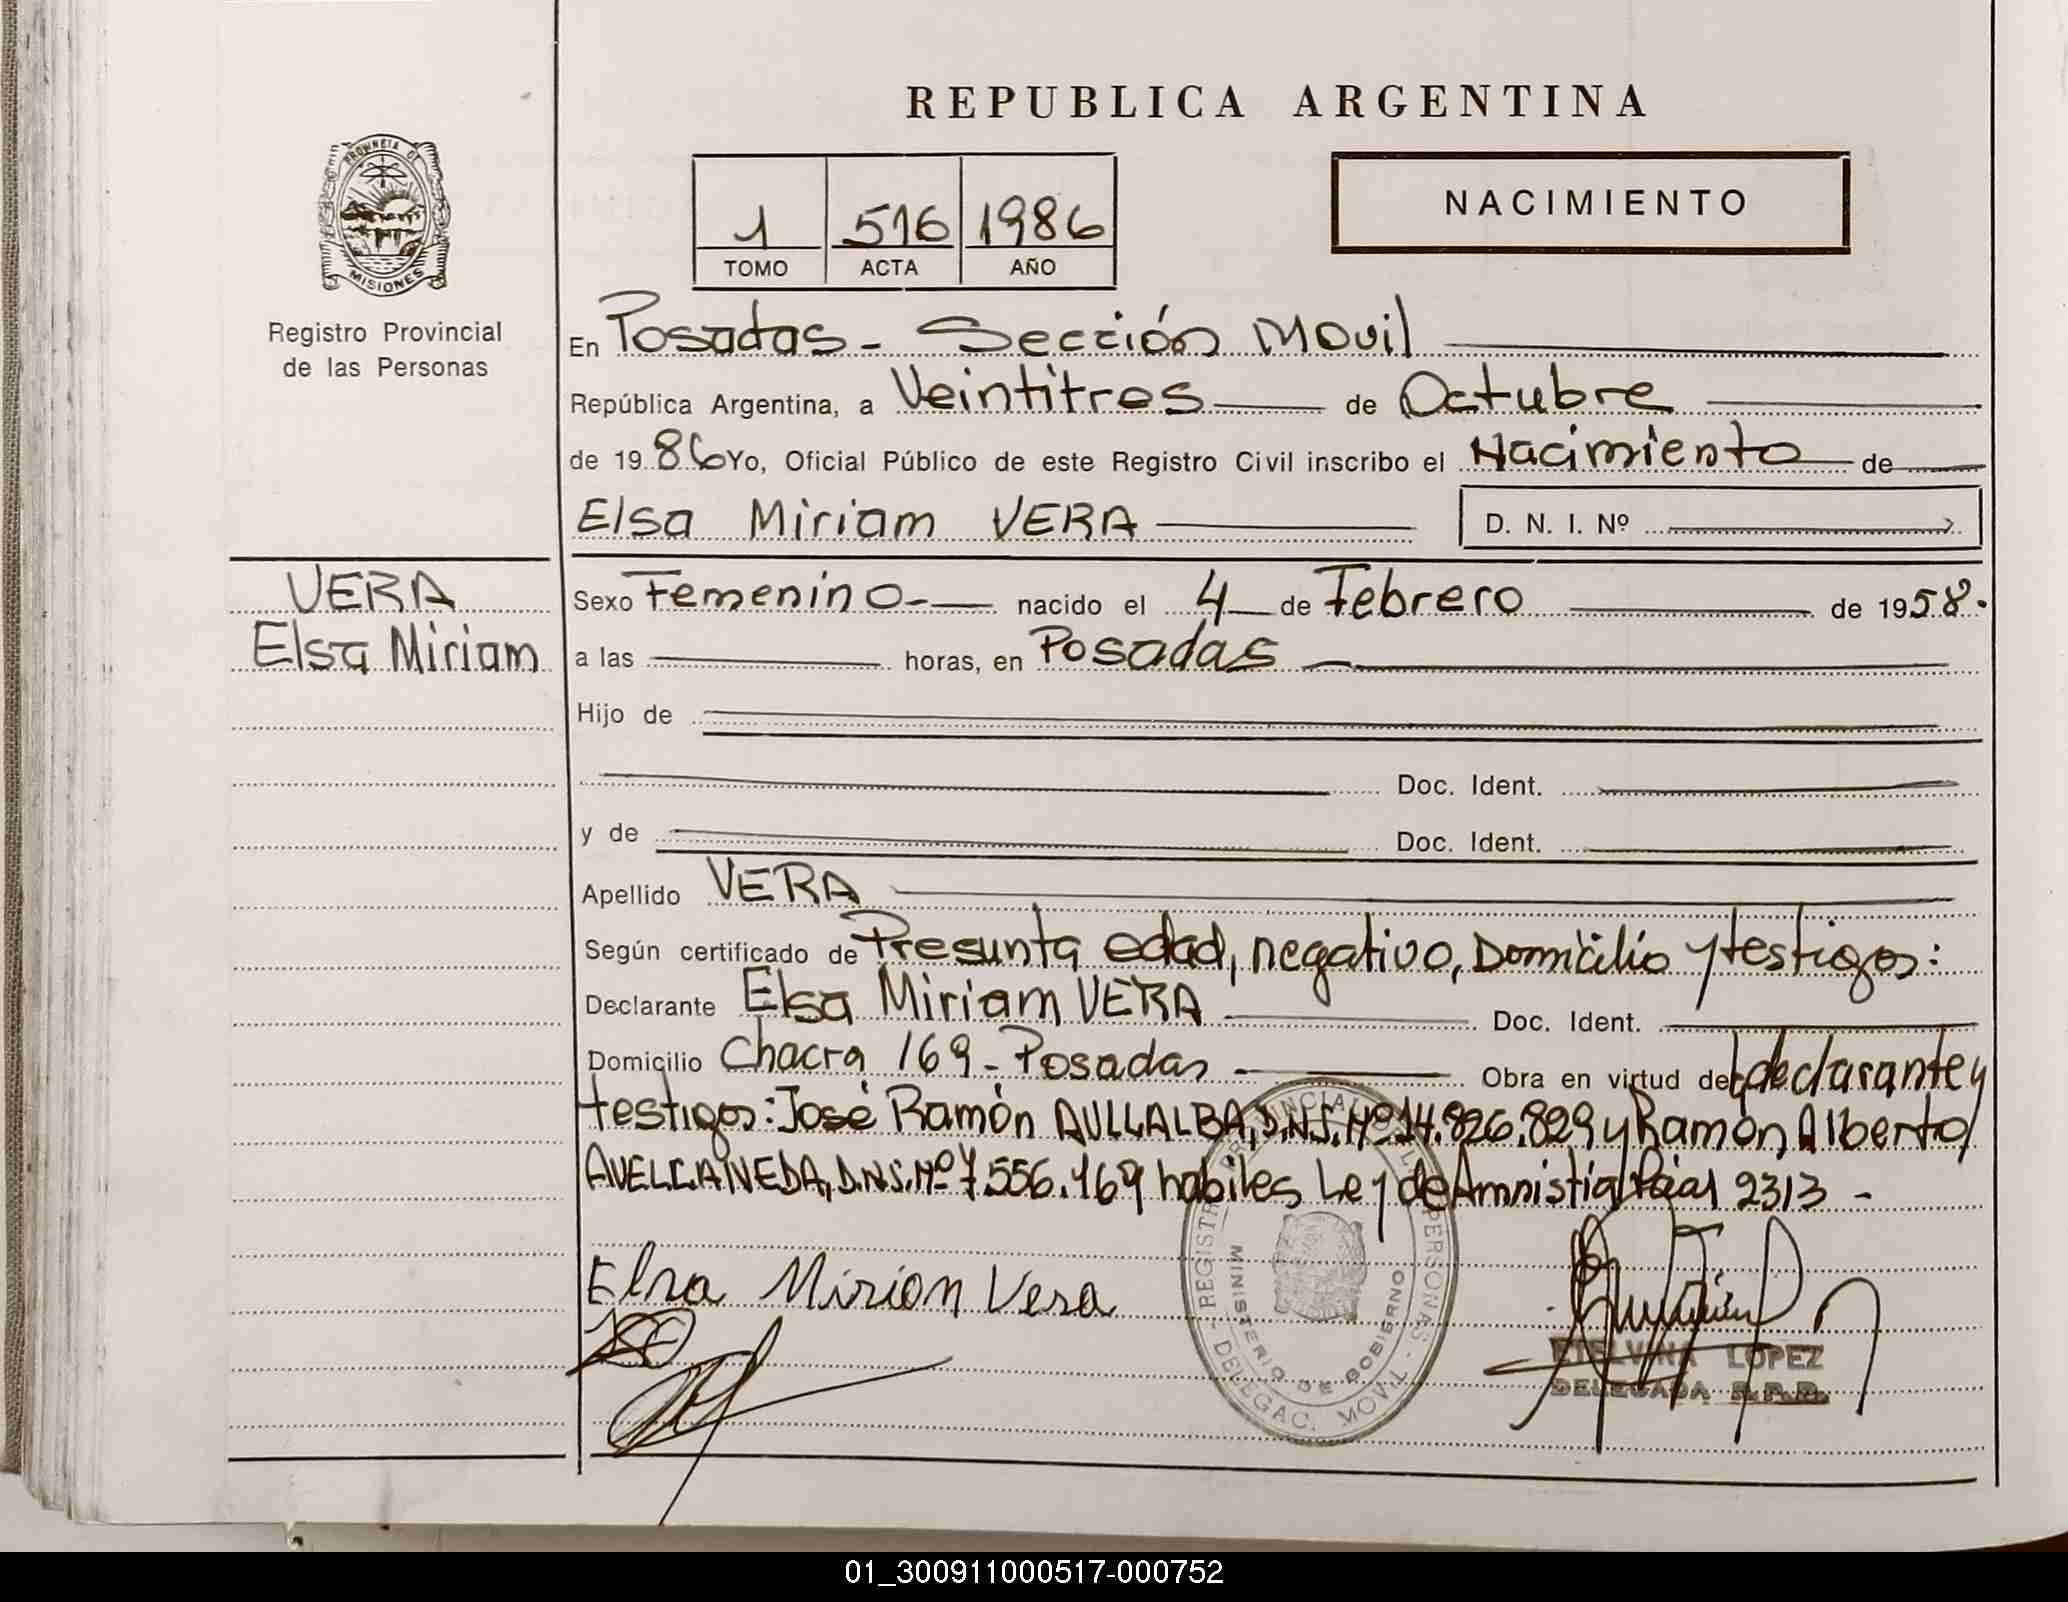 REPUBLICA ARGENTINA
PROVINCIA DE
MISIONES
Registro Provincial
de las Personas
1 516 1986
TOMO ACTA AÑO
NACIMIENTO
En Posadas - Sección Movil
República Argentina, a Veintitres de Octubre
de 1986 Yo, Oficial Público de este Registro Civil inscribo el Nacimiento de
Elsa Miriam VERA D. N. I. Nº
VERA
Elsa Miriam
Sexo Femenino - nacido el 4 de Febrero de 1958.
a las horas, en Posadas
Hijo de
Doc. Ident.
y de Doc. Ident.
Apellido VERA
Según certificado de Presunta edad, negativo, Domicilio y testigos:
Declarante Elsa Miriam VERA Doc. Ident.
Domicilio Chacra 169 - Posadas Obra en virtud del declarante y
testigos: José Ramón D.N.I. Nº 14.826.829 y Ramón Alberto
AVELLANEDA, D.N.I. Nº 7.556.169 habiles Ley de Amnistia 2313 -
Elsa Mirion Vera
REGISTRO PROVINCIAL DE LAS PERSONAS - DELEGAC. MOVIL -
MINISTERIO DE GOBIERNO
ETELVINA LOPEZ
DELEGADA R.P.P.
01_300911000517-000752